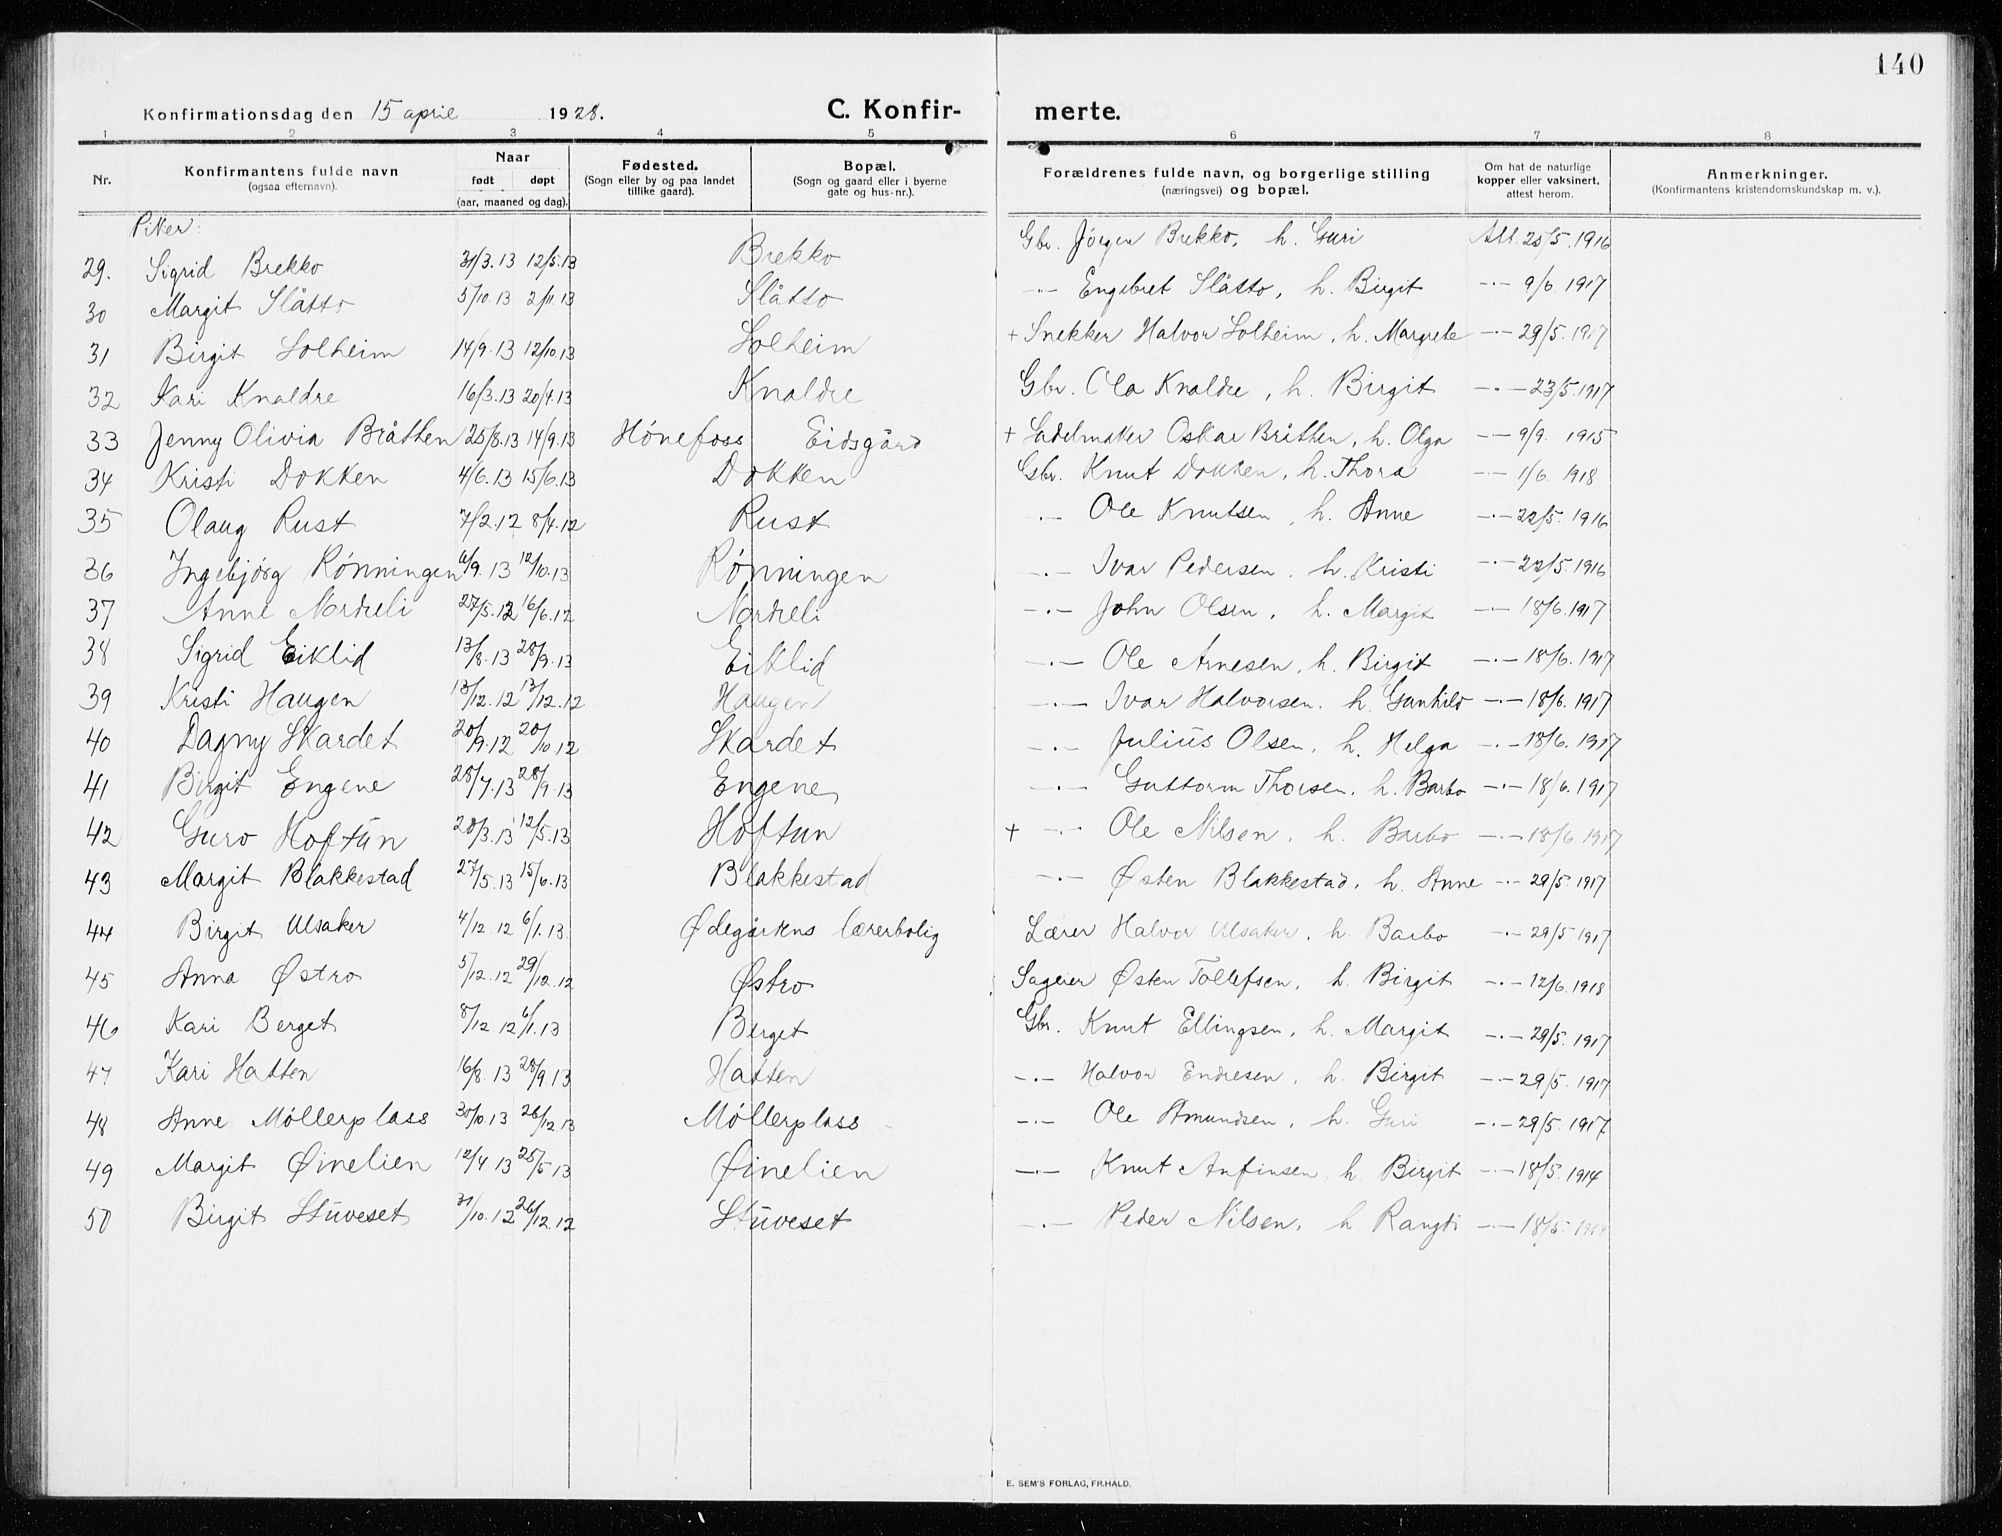 140
Konfirmationsdag den 15 april 1928. C. Konfir- merte.
1 2 3 4 5 6 7 8
Nr. Konfirmantens fulde navn (ogsaa efternavn). Naar født døpt (aar, maaned og dag). Fødested. (Sogn eller by og paa landet tillike gaard). Bopæl. (Sogn og gaard eller i byerne gate og hus-nr.). Forældrenes fulde navn, og borgerlige stilling (næringsvei) og bopæl. Om hat de naturlige kopper eller vaksinert, attest herom. Anmerkninger. (Konfirmantens kristendomskundskap m. v.).
Piker:
29. Sigrid Brekko 31/3.13 12/5.13 Brekko Gbr. Jörgen Brekko, h. Guri Att. 25/5. 1916
30 Margit Slåtto 5/10.13 2/11.13 Slåtto -·- Engebret Slåtto, h. Birgit -·- 9/6 1917
31 Birgit Solheim 14/9.13 12/10.13 Solheim + Snekker Halvor Solheim, h. Margrete -·- 29/5.1917
32 Kari Knaldre 16/3.13 20/4.13 Knaldre Gbr. Ola Knaldre, h. Birgit -·- 23/5.1917
33 Jenny Olivia Bråthen 25/8.13 14/9.13 Hönefoss Eidsgård + Sadelmaker Oskar Bråthen, h. Olga -·- 9/9. 1915
34 Kristi Dokken 4/6.13 15/6.13 Dokken Gbr. Knut Dokken, h. Thora -·- 1/6. 1918
35 Olaug Rust 7/2.12 8/4.12 Rust -·- Ole Knutsen, h. Anne -·- 22/5. 1916
36 Ingebjørg Rønningen 6/9.13 12/10.13 Rønningen -·- Ivar Pedersen, h. Kristi -·- 22/5.1916
37 Anne Nordreli 27/5.12 16/6.12 Nordreli -·- John Olsen, h. Margit -·- 18/6.1917
38 Sigrid Eiklid 13/8.13 28/9.13 Eiklid -·- Ole Arnesen, h. Birgit -·- 18/6.1917
39 Kristi Haugen 13/12.12 13/12.12 Haugen -·- Ivar Halvorsen, h. Gunhild -·- 18/6.1917
40 Dagny Skardet 20/9.12 20/10.12 Skardet -·- Julius Olsen, h. Helga -·- 18/6.1917
41 Birgit Engene 28/7.13 28/9.13 Engene -·- Guttorm Thorsen, h. Barbo -·- 18/6.1917
42 Guro Hoftun 20/3.13 12/5.13 Hoftun + -·- Ole Nilsen, h. Barbo -·- 18/6.1917
43 Margit Blakkestad 27/5.13 15/6.13 Blakkestad -·- Østen Blakkestad, h. Anne -·- 29/5 1917
44 Birgit Ulsaker 4/12.12 6/1.13 Ødegårdens lærerbolig Lærer Halvor Ulsaker, h. Barbo -·- 29/5.1917
45 Anna Østro 5/12.12 29/12.12 Østro Sageier Østen Tollefsen, h. Birgit -·- 12/6.1918
46 Kari Berget 8/12 12 6/1.13 Berget Gbr. Knut Ellingsen, h. Margit -·- 29/5.1917
47 Kari Hatten 16/8.13 28/9.13 Hatten -·- Halvor Endresen, h. Birgit -·- 29/5.1917
48 Anne Möllerplass 30/10.13 26/12.13 Möllerplass -·- Ole Amundsen, h. Guri -·- 29/5.1917
49 Margit Øinelien 12/4 13 25/5 13 Øinelien -·- Knut Anfinsen, h. Birgit -·- 18/5.1914
50 Birgit Stuveset 31/10.12 26/12.12 Stuveset -·- Peder Nilsen, h. Rangdi -·- 18/5.
E. SEM'S FORLAG, FR.HALD.